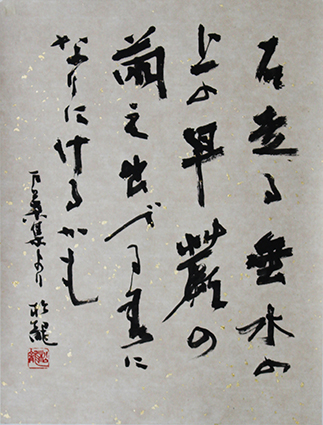 石走る垂水の
上の早蕨の
萌え出づる春に
なりにけるかも
万葉集より